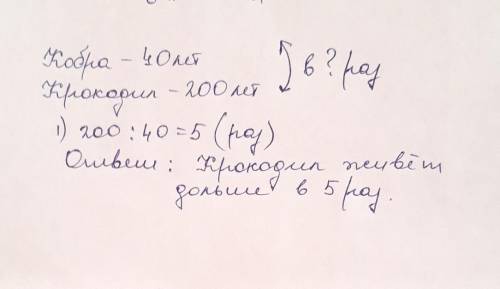 Кобра – 40 лет
Крокодил – 200 лет
в ? раз
1) 200 : 40 = 5 (раз)
Ответ : Крокодил живёт
дольше в 5 раз.